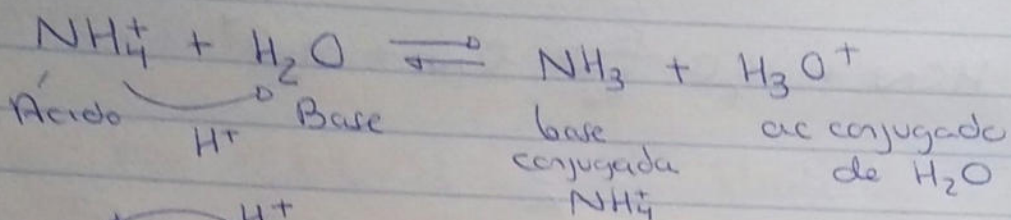 NH₄⁺ + H₂O ⇌ NH₃ + H₃O⁺
Ácido H⁺ Base base conjugada NH₄⁺ ac conjugado de H₂O
H⁺